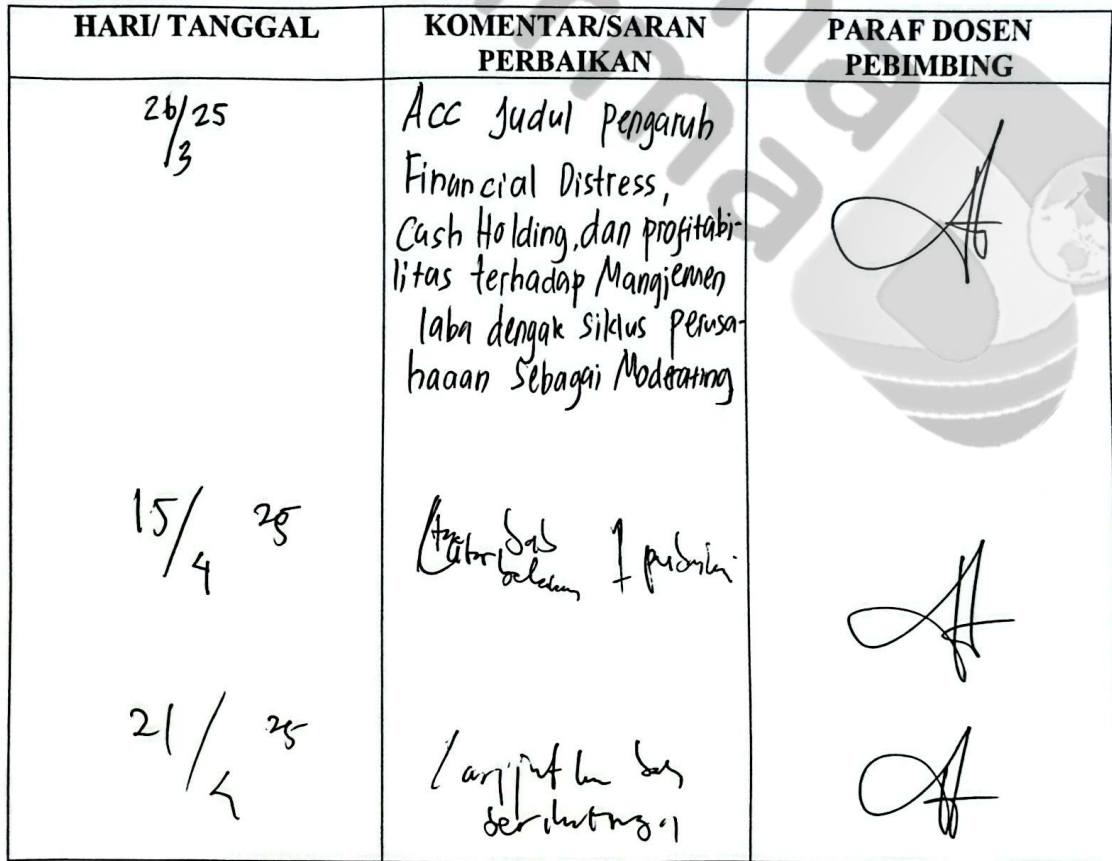 HARI/ TANGGAL
KOMENTAR/SARAN
PERBAIKAN
PARAF DOSEN
PEBIMBING
26/3 25
Acc Judul Pengaruh
Financial Distress,
Cash Holding, dan profitabi-
litas terhadap Manjiemen
laba dengak siklus perusa-
haaan Sebagai Moderating
15/4 25
bab 1
21/4 25
Lanjut ke bab
berikutnya